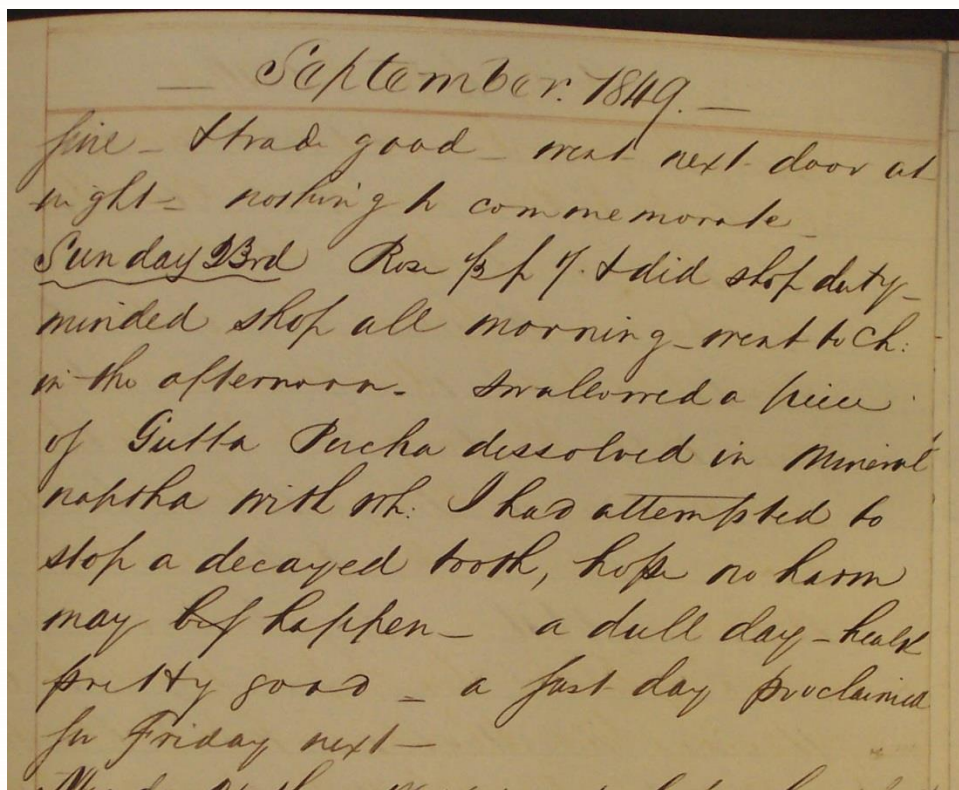 — September. 1849. —
fine — & trade good — went next door at
night — nothing to commemorate —
Sunday 23rd Rose ½ p 7. & did shop duty —
minded shop all morning — went to Ch:
in the afternoon — swallowed a piece
of Gutta Percha dessolved in mineral
naptha with wh: I had attempted to
stop a decayed tooth, hope no harm
may happen — a dull day — health
pretty good — a fast day proclaimed
for Friday next —